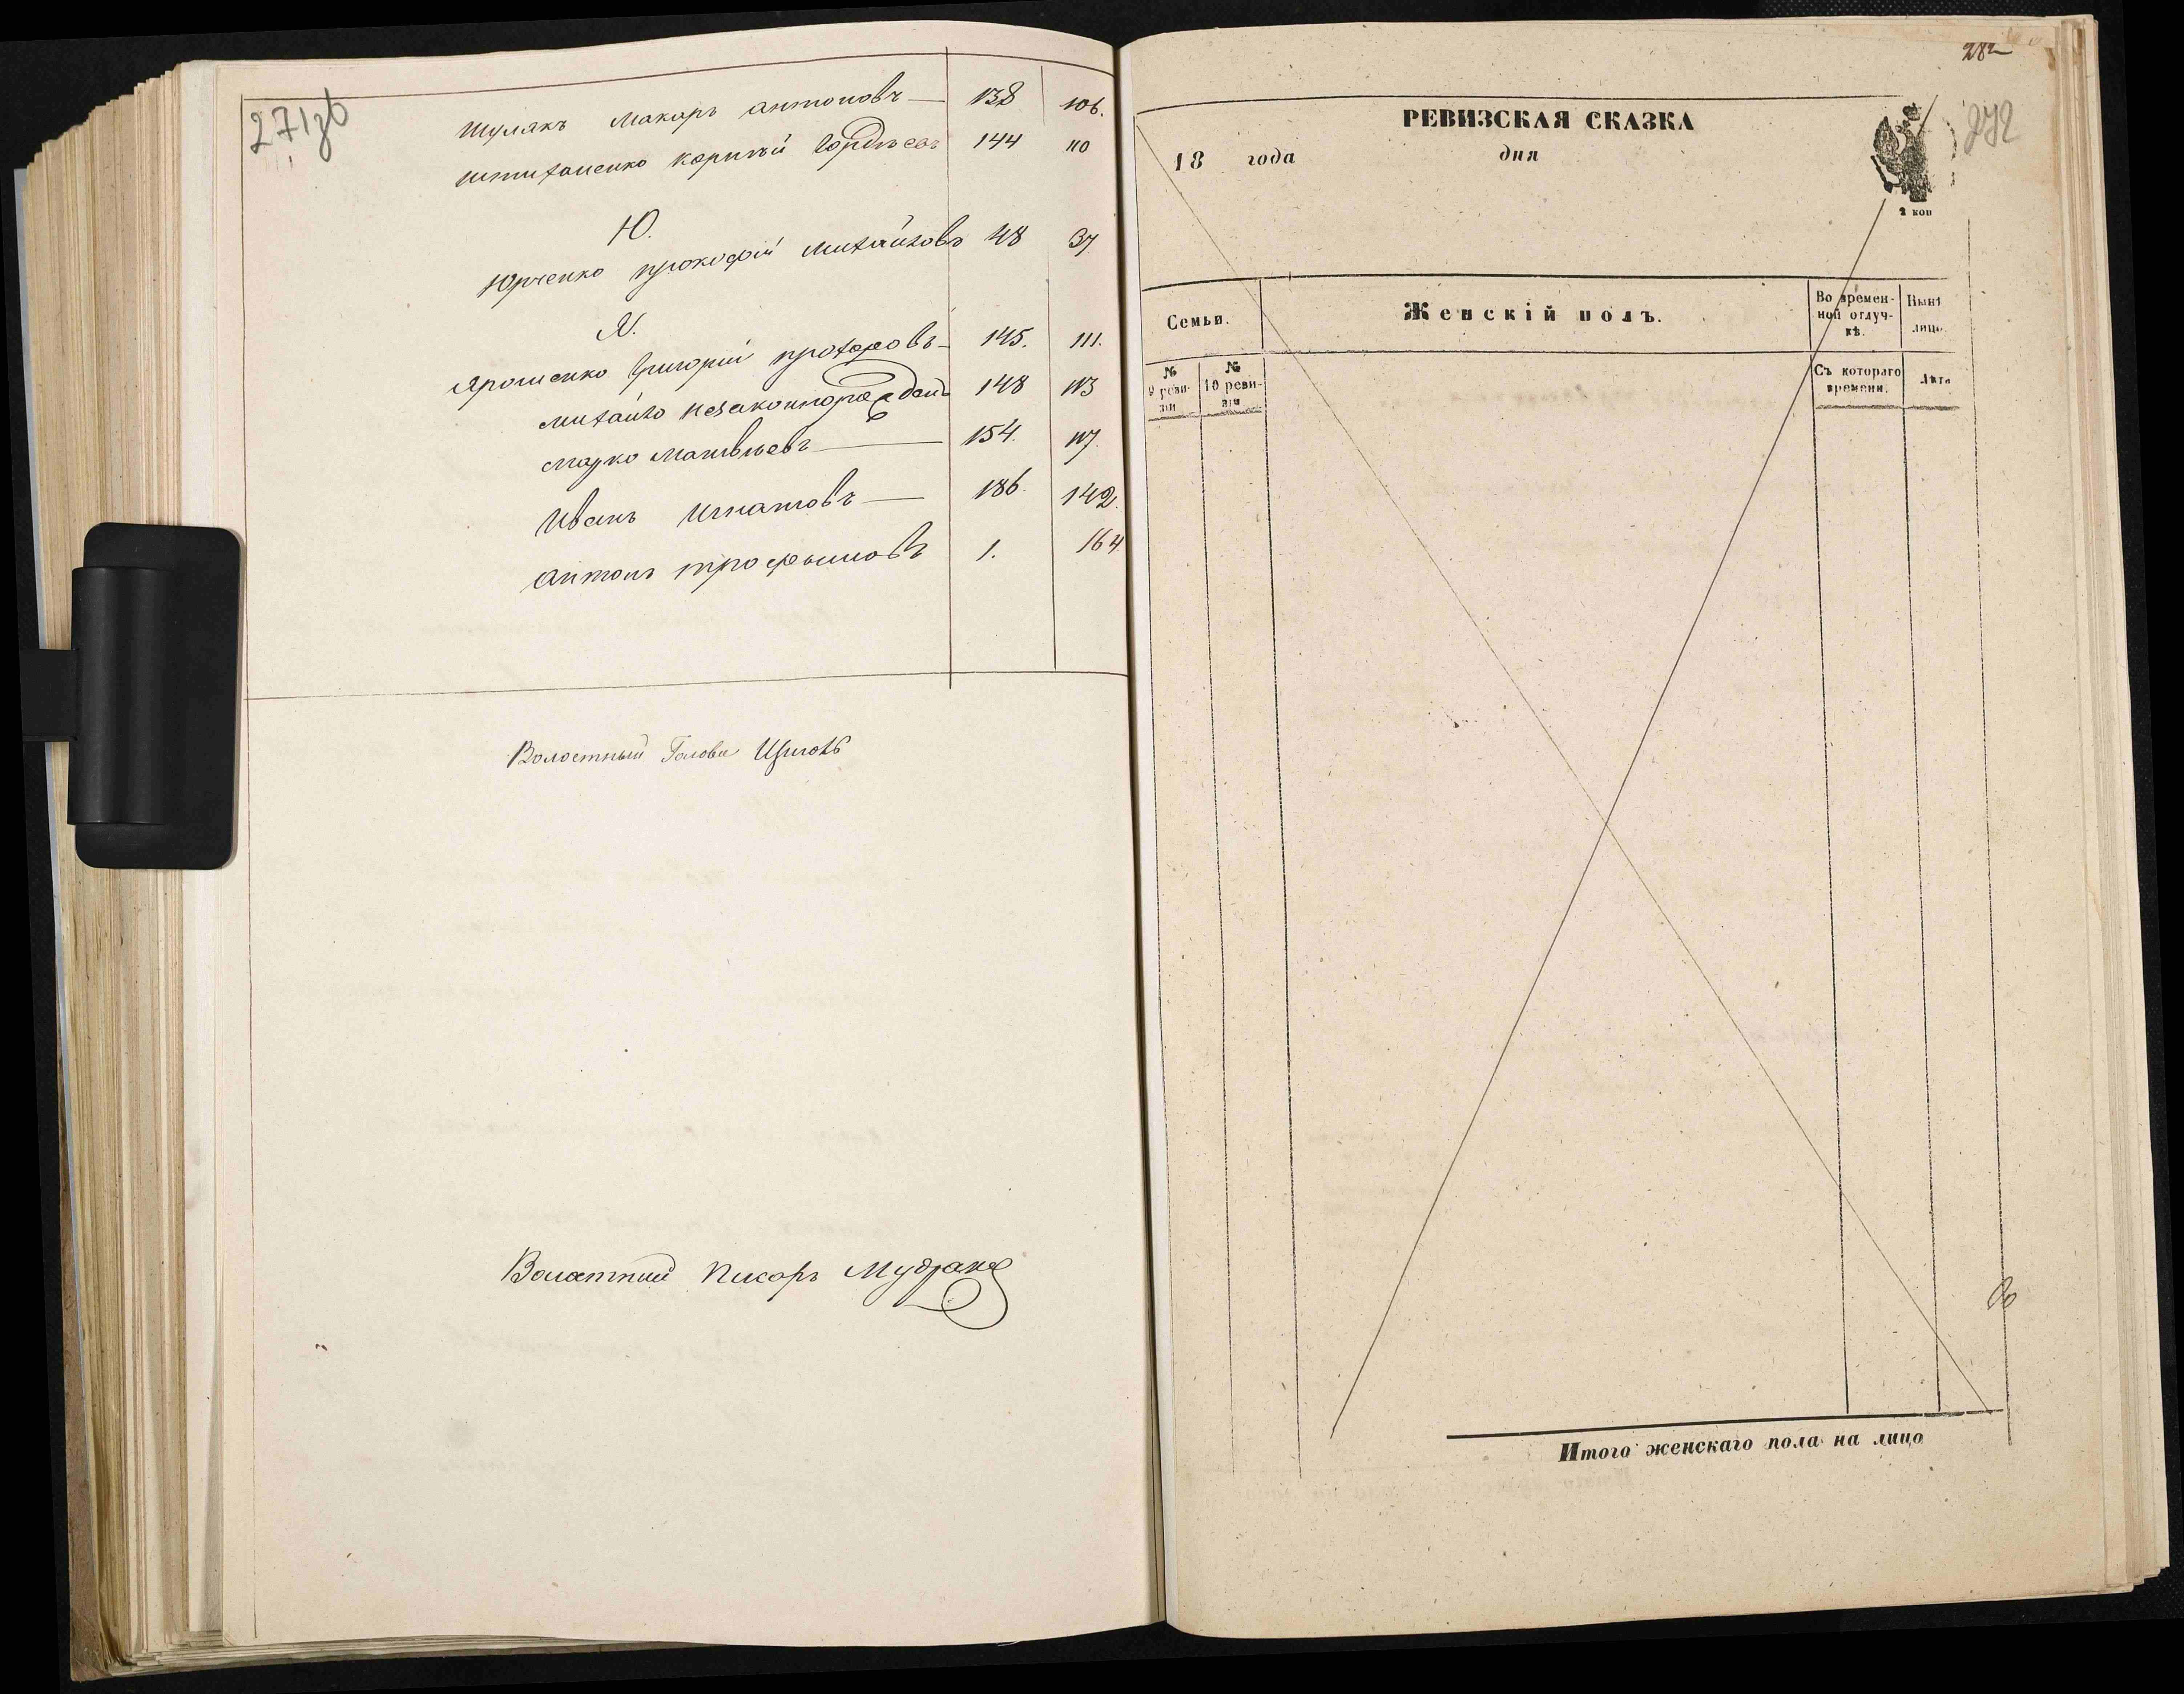 271зв
Шулякъ Макаръ Антоновъ — 138 106.
Штиханенко Корнѣй Гордѣевъ 144 110
Ю.
Юрченко Прокофій Михайловъ 48 37
Я.
Ярошенко Григорій Прохоровъ — 145. 111.
Михайло Незаконнорожденъ 148 113
Марко Матвѣевъ — 154. 117.
Иванъ Игнатовъ — 186. 142.
Антонъ Трофимовъ 1. 164
Волостный Голова
Волостний Писарь Мудрак
282
272
РЕВИЗСКАЯ СКАЗКА
18 года дня
2 коп
Семьи.
Женскій полъ.
Во времен-
ной отлуч-
кѣ.
Нынѣ
лицо.
№
9 реви-
зіи
№
10 реви-
зіи
Съ котораго
времени.
Лѣта
Итого женскаго пола на лицо